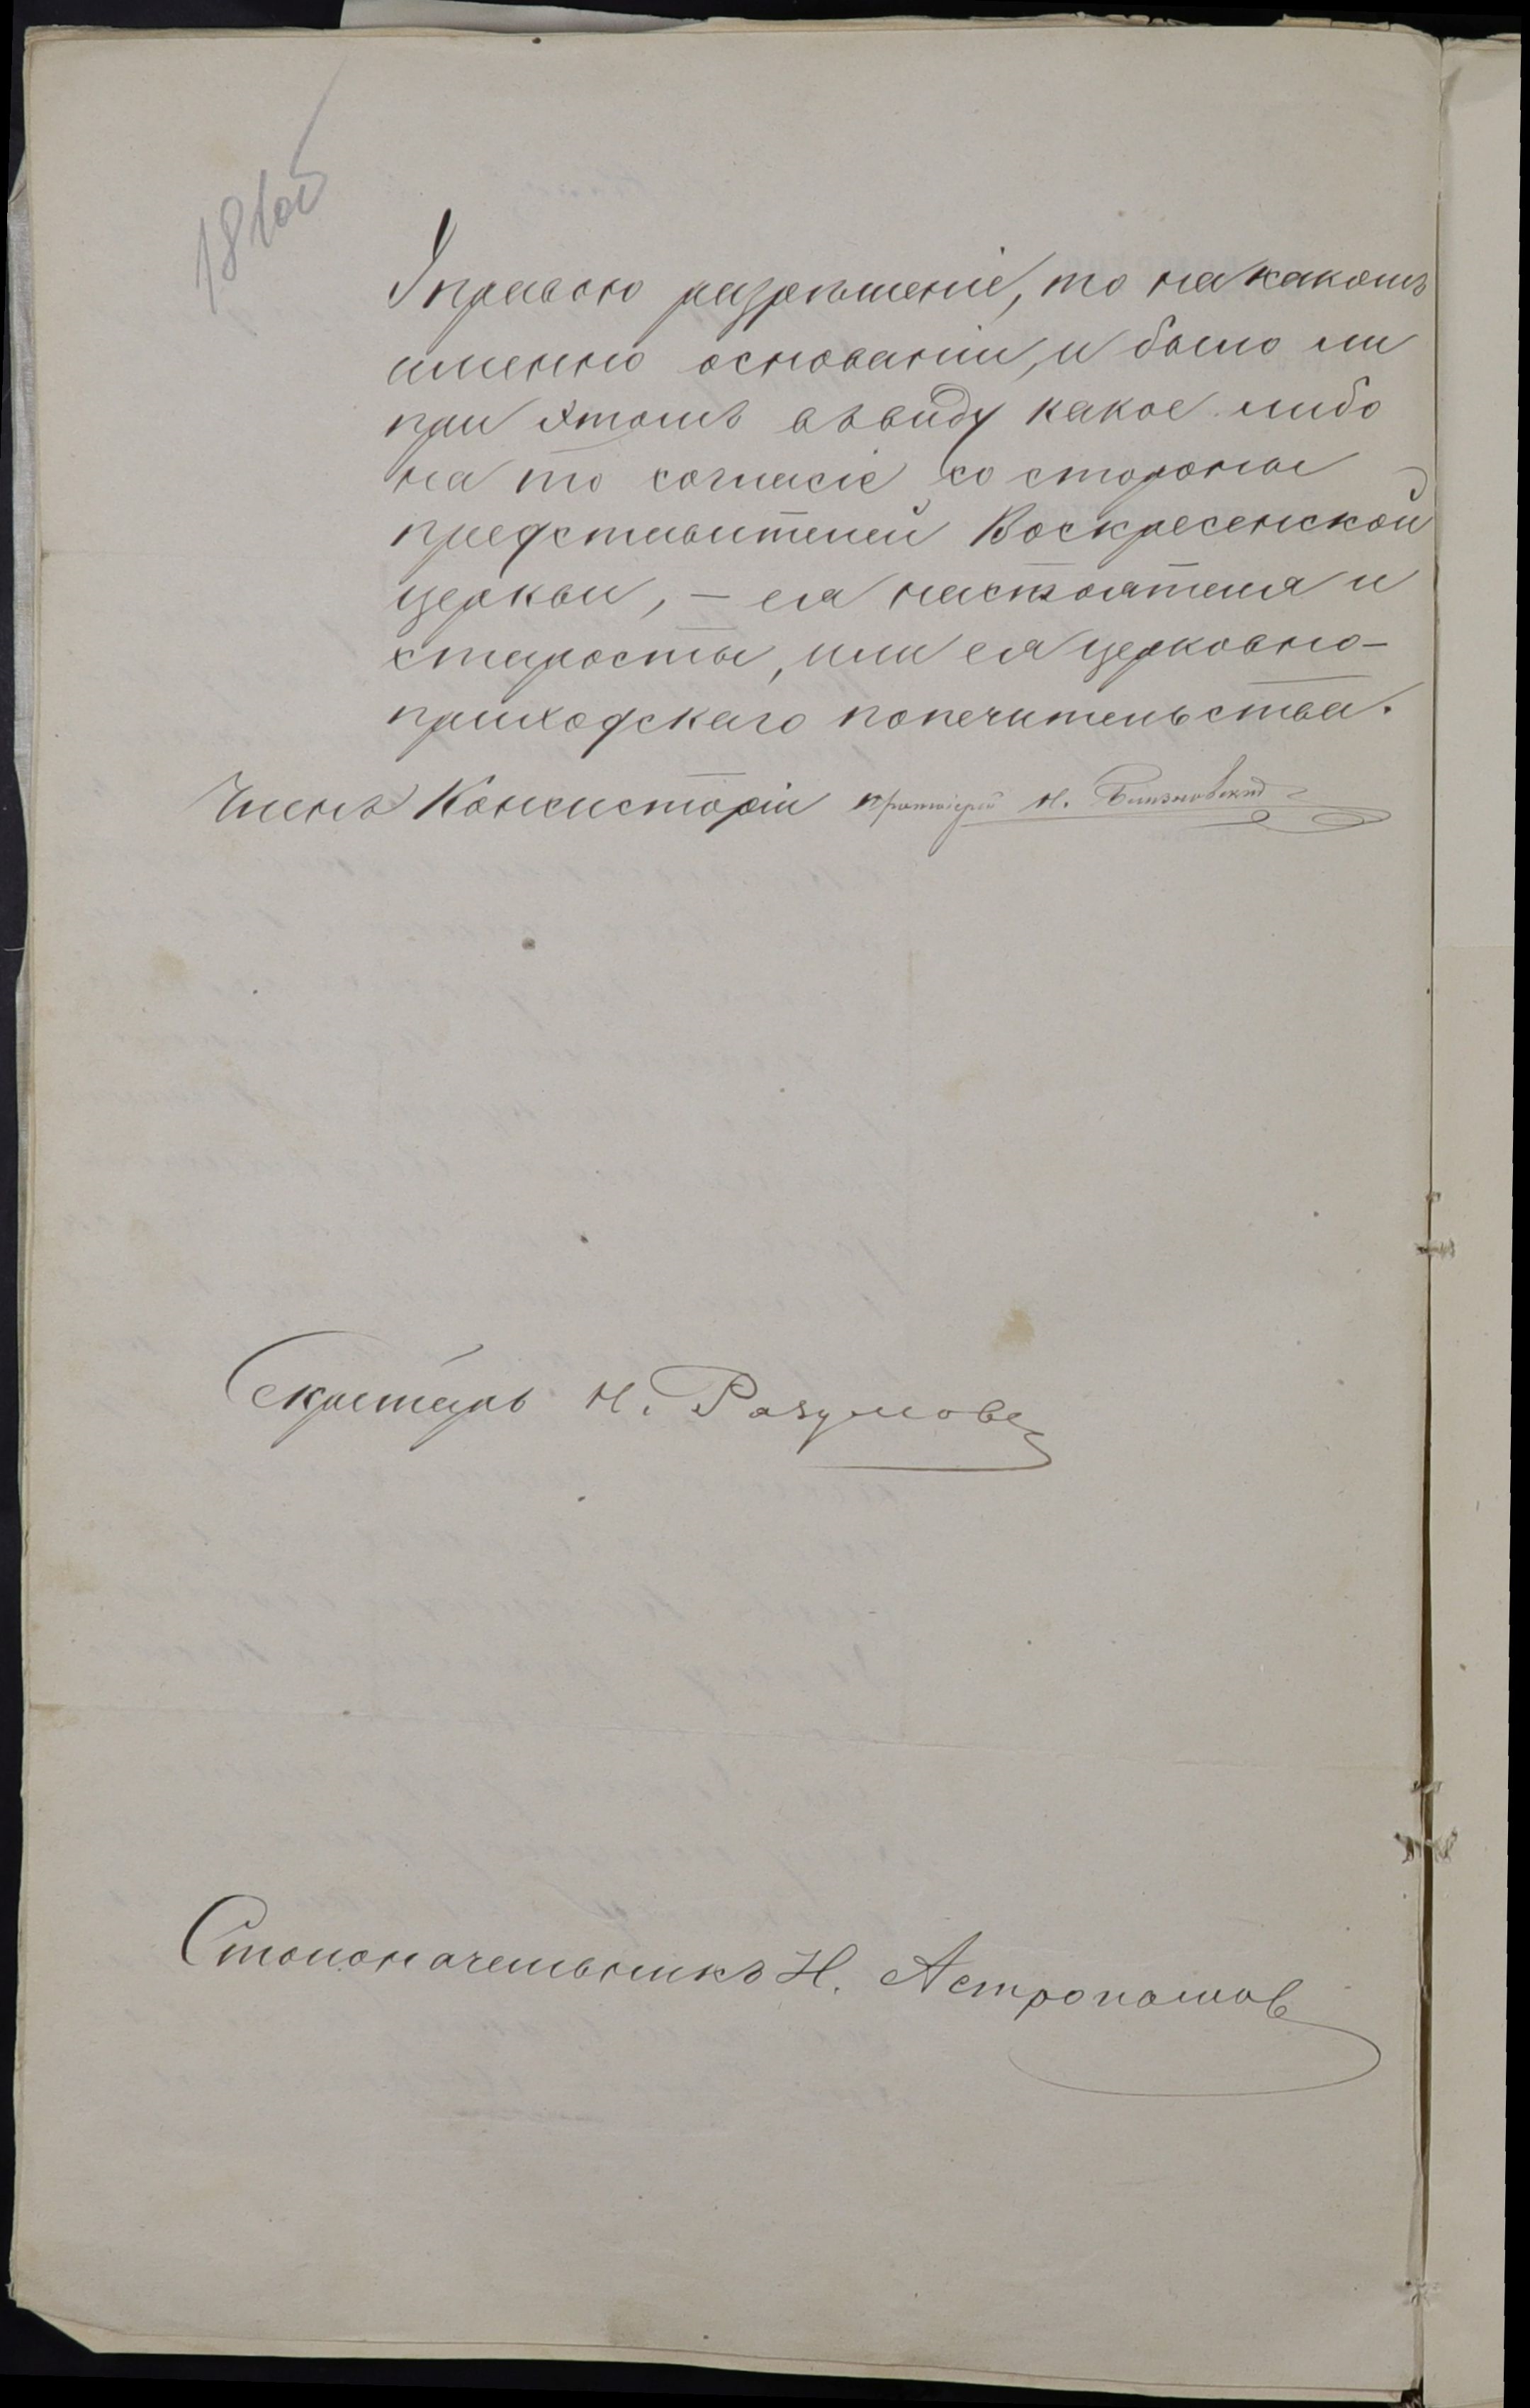 181об
Управою разрѣшеніе, то на какомъ
именно основаніи, и было ли
при этомъ въ виду какое либо
на то согласіе со стороны
представителей Воскресенской
церкви, – ея настоятеля и
старосты, или ея церковно-
приходскаго попечительства.
Членъ Консисторіи протоіерей Н. Близновскій
Секретарь Н. Разумовъ
Столоначальникъ Н.